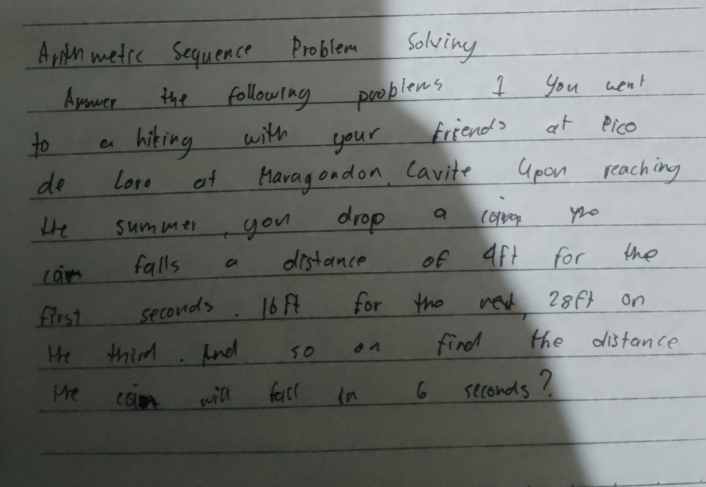 Arithmetic Sequence Problem Solving
Answer the following problems 1 You went
to a hiking with your friends at Pico
de Loro at Maragondon, Cavite Upon reaching
the summer, you drop a
falls a distance of 4ft for the
first seconds. 16ft for the next, 28ft on
the third. And so on find the distance
the coin will fall in 6 seconds?